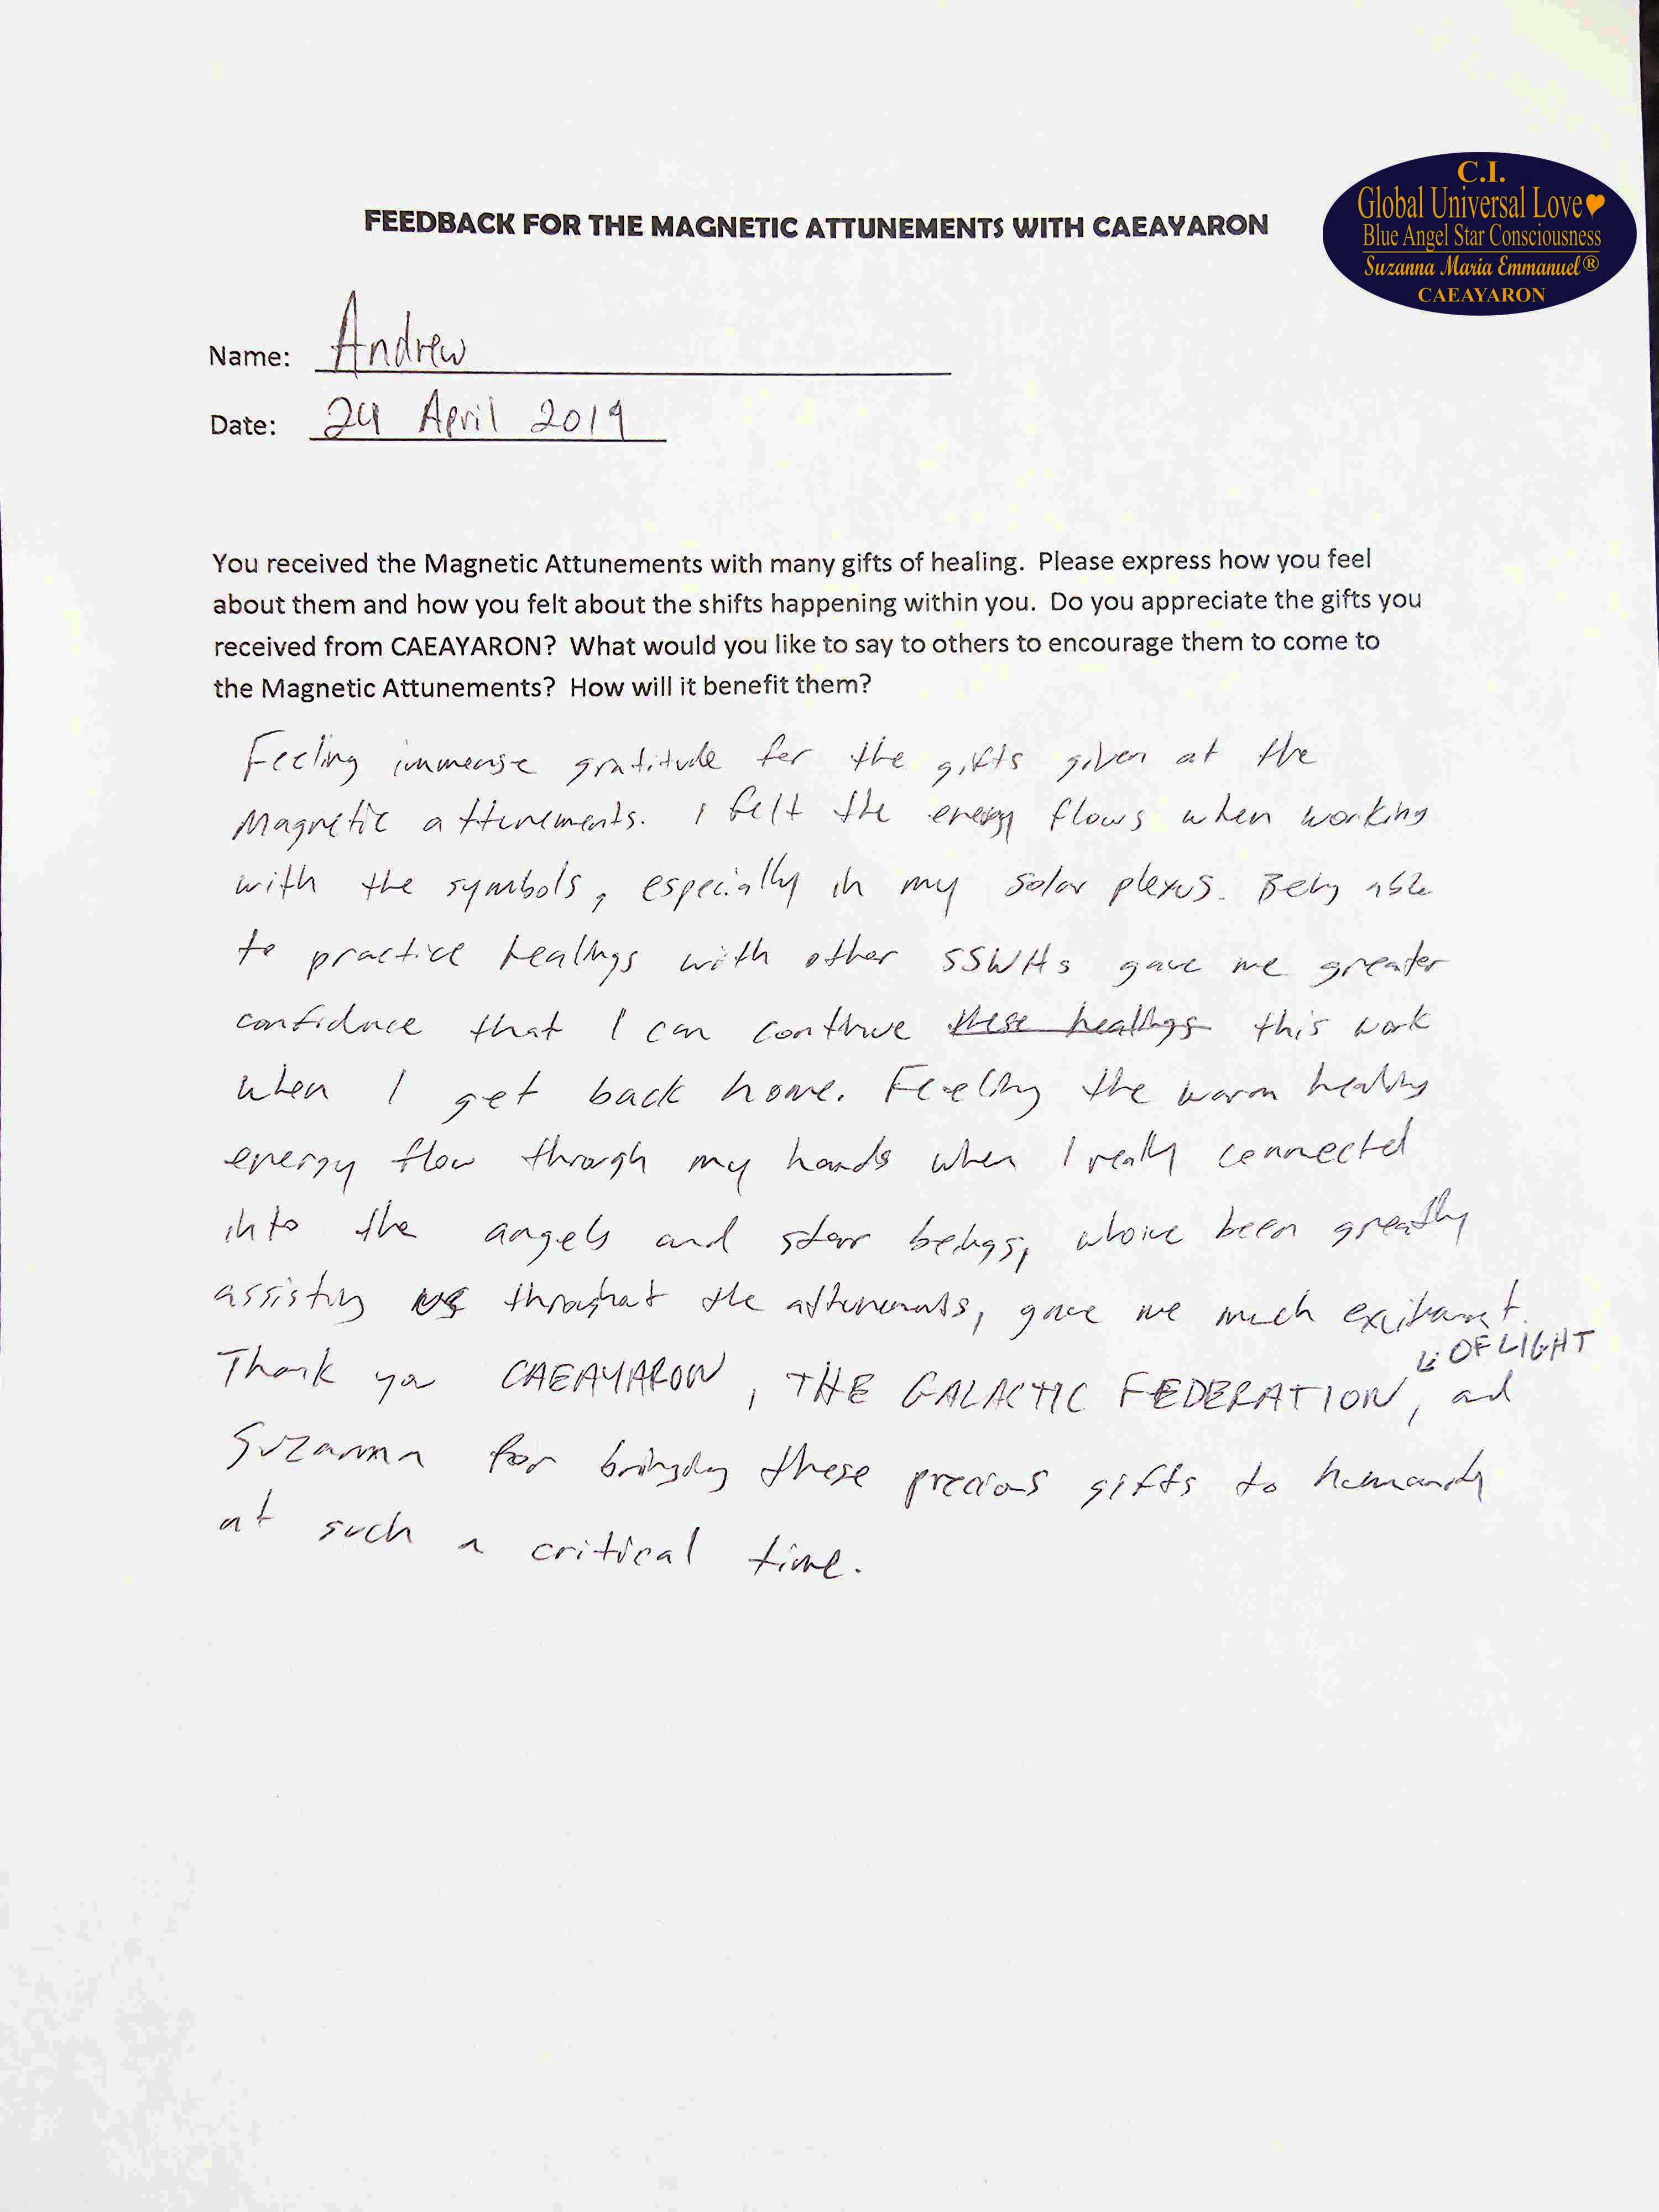 C.I.
Global Universal Love
Blue Angel Star Consciousness
Suzanna Maria Emmanuel®
CAEAYARON
FEEDBACK FOR THE MAGNETIC ATTUNEMENTS WITH CAEAYARON
Name: Andrew
Date: 24 April 2019
You received the Magnetic Attunements with many gifts of healing. Please express how you feel
about them and how you felt about the shifts happening within you. Do you appreciate the gifts you
received from CAEAYARON? What would you like to say to others to encourage them to come to
the Magnetic Attunements? How will it benefit them?
Feeling immense gratitude for the gifts given at the
Magnetic attunements. I felt the energy flows when working
with the symbols, especially in my solar plexus. Being able
to practice healings with other SSWHs gave me greater
confidence that I can continue these healings this work
when I get back home. Feeling the warm healing
energy flow through my hands when I really connected
into the angels and star beings, who've been greatly
assisting us throughout the attunements, gave me much excitement.
Thank you CAEAYARON, THE GALACTIC FEDERATION OF LIGHT, and
Suzanna for bringing these precious gifts to humanity
at such a critical time.